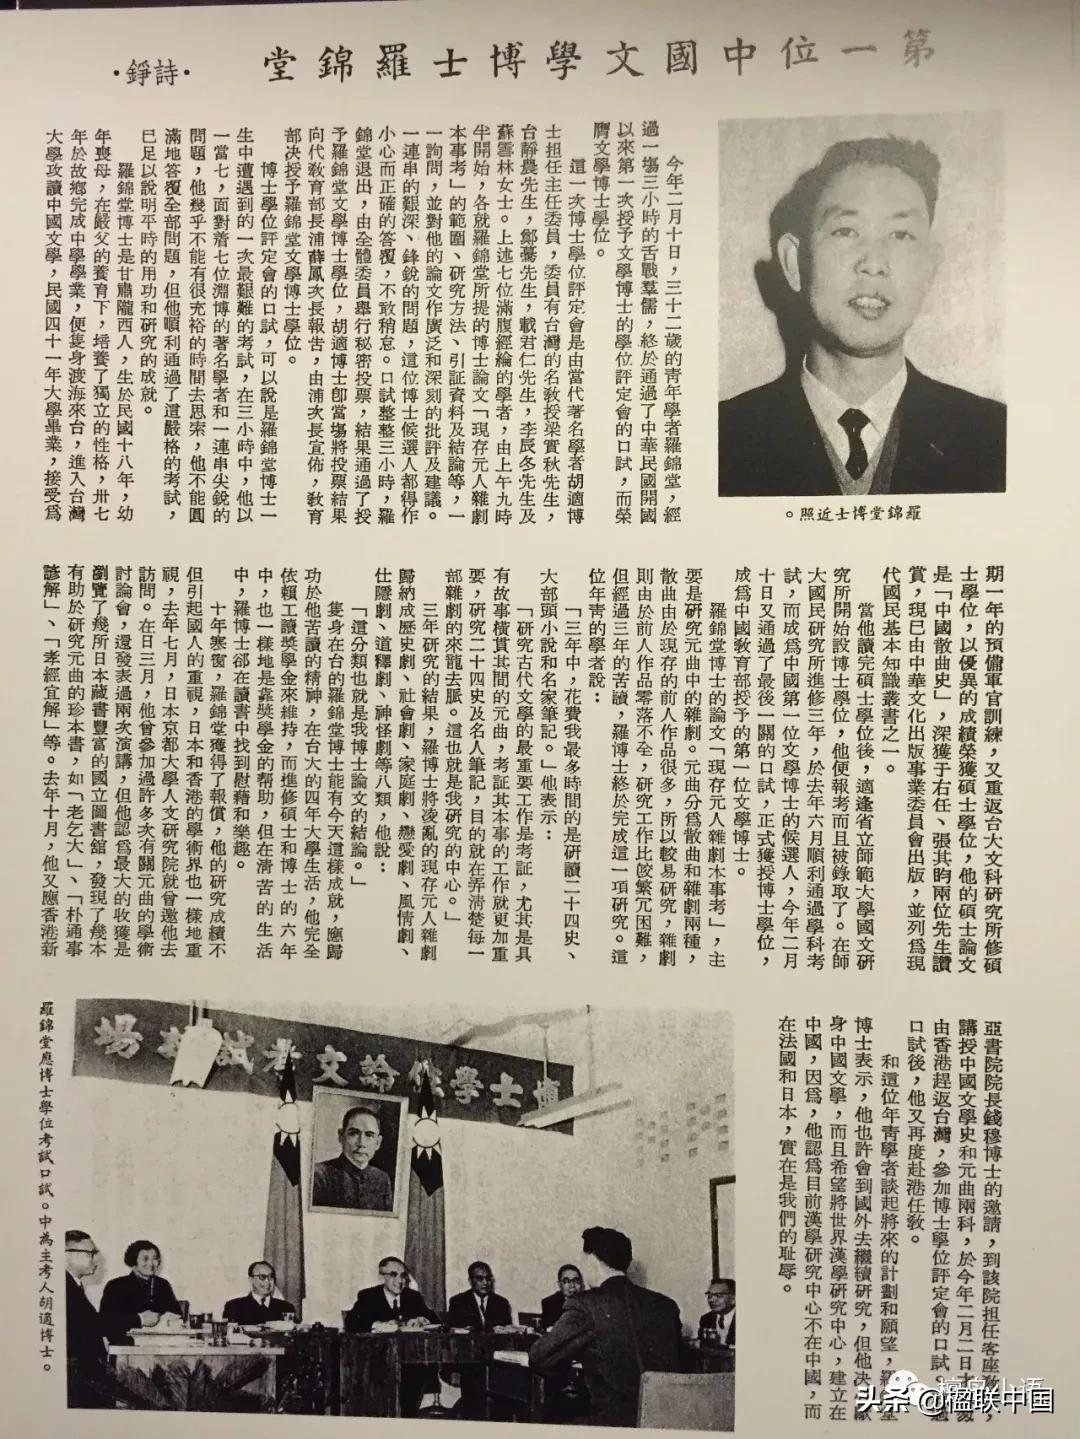 第一位中國文學博士羅錦堂
·詩錚·
今年二月十日，三十二歲的青年學者羅錦堂，經
過一場三小時的舌戰羣儒，終於通過了中華民國開國
以來第一次授予文學博士的學位評定會的口試，而榮
膺文學博士學位。
這一次博士學位評定會是由當代著名學者胡適博
士担任主任委員，委員有台灣的名教授梁實秋先生，
台靜農先生，鄭騫先生，戴君仁先生，李辰冬先生及
蘇雪林女士。上述七位滿腹經綸的學者，由上午九時
半開始，各就羅錦堂所提的博士論文「現存元人雜劇
本事考」的範圍、研究方法、引証資料及結論等，一
一詢問，並對他的論文作廣泛和深刻的批評及建議。
一連串的艱深、鋒銳的問題，這位博士候選人都得作
小心而正確的答覆，不敢稍怠。口試整整三小時，羅
錦堂退出，由全體委員舉行秘密投票，結果通過了授
予羅錦堂文學博士學位，胡適博士卽當場將投票結果
向代教育部長浦薛鳳次長報告，由浦次長宣佈，教育
部决授予羅錦堂文學博士學位。
博士學位評定會的口試，可以說是羅錦堂博士一
生中遭遇到的一次最艱難的考試，在三小時中，他以
一當七，面對着七位淵博的著名學者和一連串尖銳的
問題，他幾乎不能有很充裕的時間去思索，他不能圓
滿地答覆全部問題，但他順利通過了這嚴格的考試，
已足以說明平時的用功和研究的成就。
羅錦堂博士是甘肅隴西人，生於民國十八年，幼
年喪母，在嚴父的養育下，培養了獨立的性格，卅七
年於故鄉完成中學學業，便隻身渡海來台，進入台灣
大學攻讀中國文學，民國四十一年大學畢業，接受爲
羅錦堂博士近照。
期一年的預備軍官訓練，又重返台大文科研究所修碩
士學位，以優異的成績榮獲碩士學位，他的碩士論文
是「中國散曲史」，深獲于右任、張其昀兩位先生讚
賞，現已由中華文化出版事業委員會出版，並列爲現
代國民基本知識叢書之一。
當他讀完碩士學位後，適逢省立師範大學國文研
究所開始設博士學位，他便報考而且被錄取了。在師
大國民研究所進修三年，於去年六月順利通過學科考
試，而成爲中國第一位文學博士的候選人，今年二月
十日又通過了最後一關的口試，正式獲授博士學位，
成爲中國教育部授予的第一位文學博士。
羅錦堂博士的論文「現存元人雜劇本事考」，主
要是研究元曲中的雜劇。元曲分爲散曲和雜劇兩種，
散曲由於現存的前人作品很多，所以較易研究，雜劇
則由於前人作品零落不全，研究工作比較繁冗困難，
但經過三年的苦讀，羅博士終於完成這一項研究。這
位年靑的學者說：
「三年中，花費我最多時間的是研讀二十四史、
大部頭小說和名家筆記。」他表示：
「研究古代文學的最重要工作是考証，尤其是具
有故事橫貫其間的元曲，考証其本事的工作就更加重
要，研究二十四史及名人筆記，目的就在弄清楚每一
部雜劇的來龍去脈。這也就是我研究的中心。」
三年研究的結果，羅博士將凌亂的現存元人雜劇
歸納成歷史劇、社會劇、家庭劇、戀愛劇、風情劇、
仕隱劇、道釋劇、神怪劇等八類，他說：
「這分類也就是我博士論文的結論。」
隻身在台的羅錦堂博士能有今天這樣成就，應歸
功於他苦讀的精神，在台大的四年大學生活，他完全
依賴工讀獎學金來維持，而進修碩士和博士的六年
中，也一樣地是靠獎學金的帮助，但在清苦的生活
中，羅博士卻在讀書中找到慰藉和樂趣。
十年寒窗，羅錦堂獲得了報償，他的研究成績不
但引起國人的重視，日本和香港的學術界也一樣地重
視，去年七月，日本京都大學人文研究院就曾邀他去
訪問。在日三月，他曾參加過許多次有關元曲的學術
討論會，還發表過兩次演講，但他認爲最大的收獲是
瀏覽了幾所日本藏書豐富的國立圖書舘，發現了幾本
有助於研究元曲的珍本書，如「老乞大」、「朴通事
諺解」、「孝經宜解」等。去年十月，他又應香港新
亞書院院長錢穆博士的邀請，到該院担任客座教
講授中國文學史和元曲兩科，於今年二月二日
由香港趕返台灣，參加博士學位評定會的口試。
口試後，他又再度赴港任教。
和這位年靑學者談起將來的計劃和願望，羅
博士表示，他也許會到國外去繼續研究，但他决
身中國文學，而且希望將世界漢學研究中心，建立在
中國，因爲，他認爲目前漢學研究中心不在中國，而
在法國和日本，實在是我們的耻辱。
博士學位論文考試試場
羅錦堂應博士學位考試口試。中為主考人胡適博士。
头条 @楹联中国